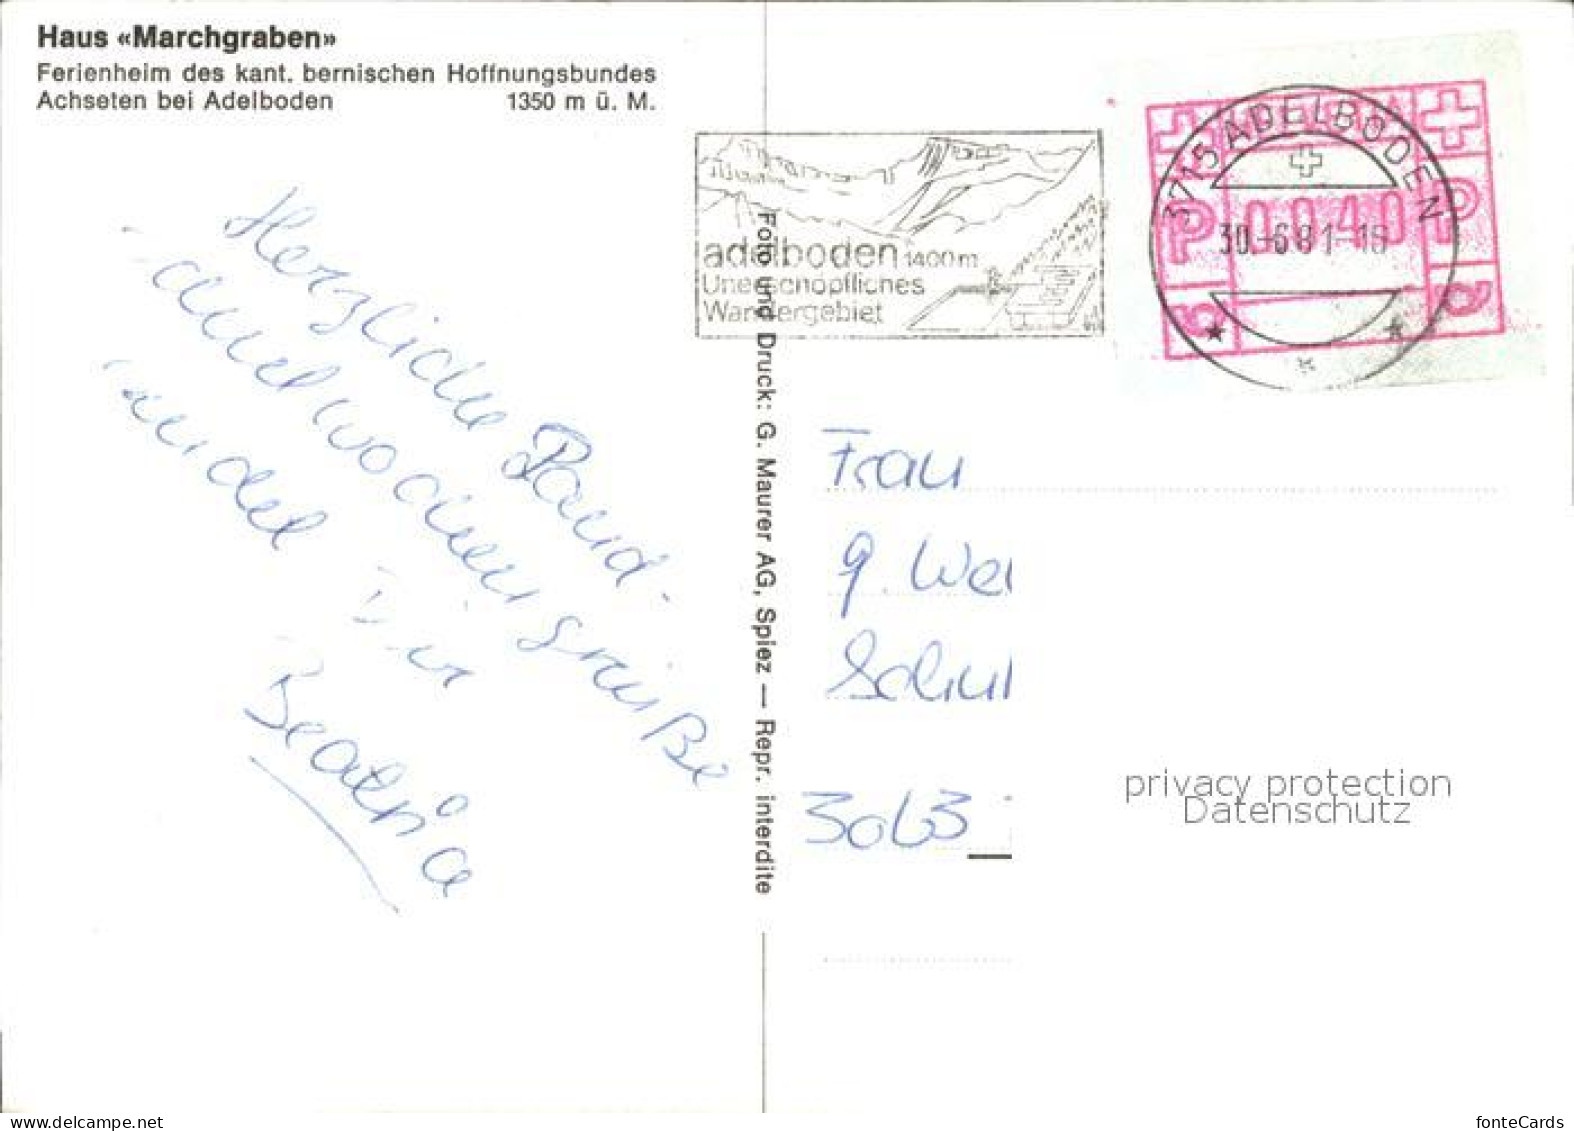 Haus «Marchgraben»
Ferienheim des kant. bernischen Hoffnungsbundes
Achseten bei Adelboden 1350 m ü. M.
adelboden 1400m
Unerschöpfliches
Wandergebiet
3715 ADELBODEN
30.-6 81-16
P 0040 P
Foto und Druck: G. Maurer AG, Spiez — Repr. interdite
Herzliche
Grüße
Beatrice
Frau
3063
privacy protection
Datenschutz
www.delcampe.net
fonteCards